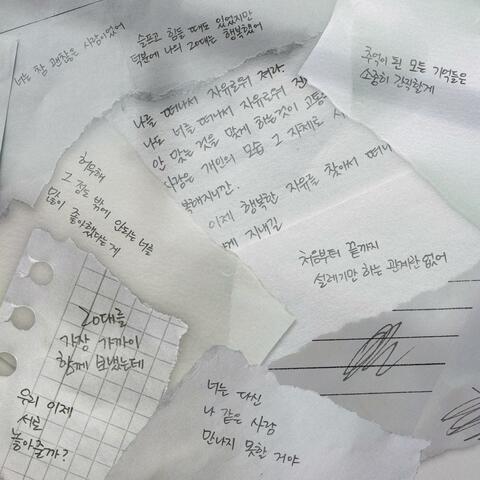 너는 참 괜찮은 사람이었어
슬프고 힘들 때도 있었지만
덕분에 나의 20대는 행복했어
추억이 된 모든 기억들은
소중히 간직할게
나를 떠나서 자유로워 져라.
나도 너를 떠나서 자유로워
안 맞는 것을 맞게 하는것이 고통
사랑은 개인의 모습 그 자체로
복해지니깐.
이제 행복한 자유를 찾아서 떠나
게 지내길
허무해
그 정도 밖에 안되는 너를
많이 좋아했다는게
처음부터 끝까지
설레기만 하는 관계란 없어
20대를
가장 가까이
함께 보냈는데
우리 이제
서로
놓아줄까?
너는 다신
나 같은 사람
만나지 못할 거야